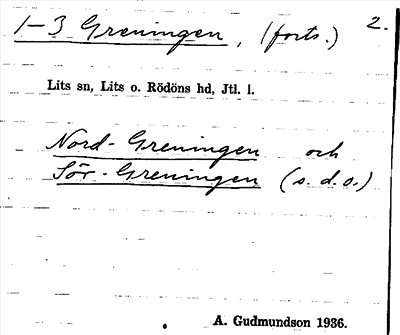 1-3 Greningen, (forts.) 2.
Lits sn, Lits o. Rödöns hd, Jtl. l.
Nord-Greningen och
Sör-Greningen (s.d.o.)
A. Gudmundson 1936.